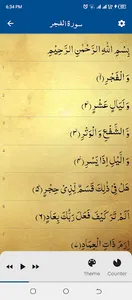 6:34 PM
سورة الفجر
بِسْمِ اللهِ الرَّحْمٰنِ الرَّحِيْمِ
وَ الْفَجْرِ(۱)
وَ لَیَالٍ عَشْرٍ(۲)
وَّ الشَّفْعِ وَ الْوَتْرِ(۳)
وَ الَّیْلِ اِذَا یَسْرِ(۴)
هَلْ فِیْ ذٰلِكَ قَسَمٌ لِّذِیْ حِجْرٍ(۵)
اَلَمْ تَرَ كَیْفَ فَعَلَ رَبُّكَ بِعَادٍ(۶)
اِرَمَ ذَاتِ الْعِمَادِ(۷)
Theme
Counter